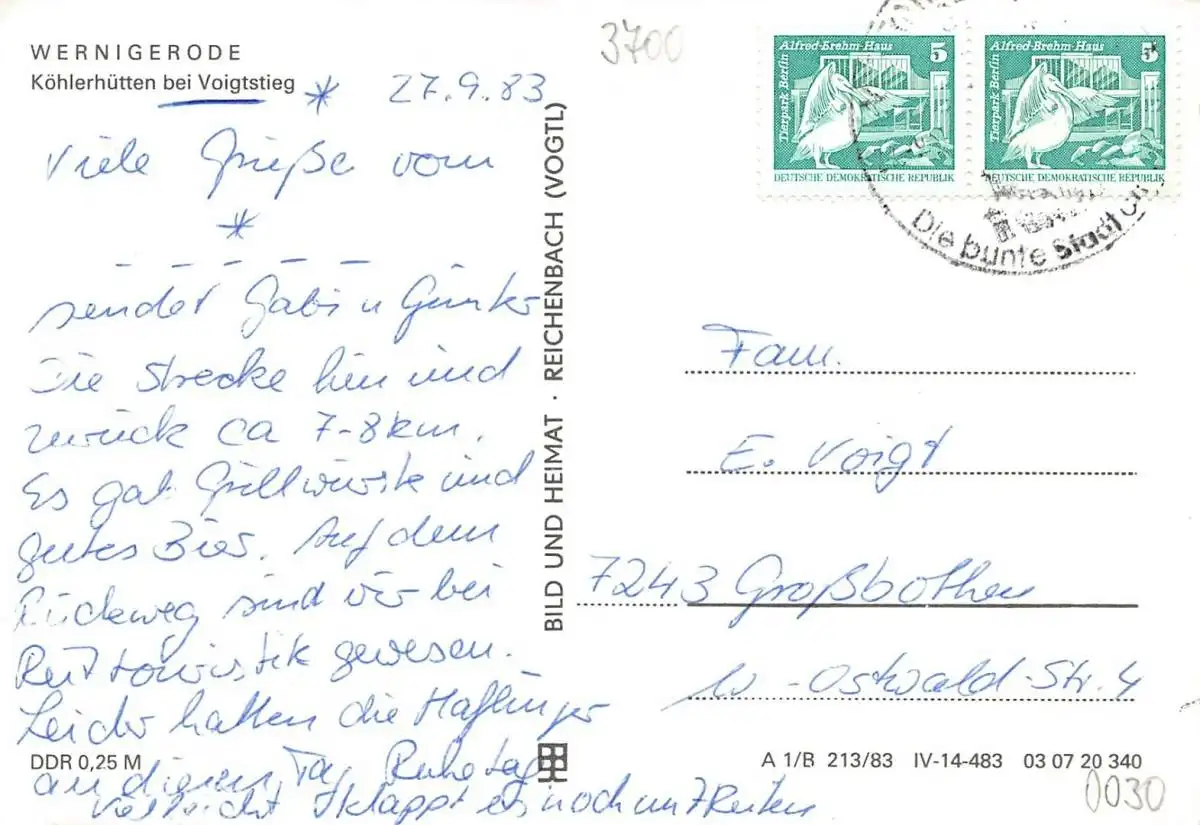 WERNIGERODE
Köhlerhütten bei Voigtstieg *
27.9.83
Viele Grüße vom
*
_ _ _ _ _ _
sendet Gabi u Günter
Die Strecke hin und
zurück ca 7-8 km.
Es gab Grillwürste und
gutes Bier. Auf dem
Rückweg sind wir bei
Reittouristik gewesen.
Leider hatten die Haflinger
an diesem Tag Ruhetag
Vielleicht klappt es noch mit Reiten
DDR 0,25 M
BILD UND HEIMAT · REICHENBACH (VOGTL)
3700
Alfred-Brehm-Haus 5
Tierpark Berlin
DEUTSCHE DEMOKRATISCHE REPUBLIK
Alfred-Brehm-Haus 5
Tierpark Berlin
DEUTSCHE DEMOKRATISCHE REPUBLIK
Die bunte Stadt
Fam.
E. Voigt
7243 Großbothen
W-Ostwald-Str. 4
A 1/B 213/83 IV-14-483 03 07 20 340
0030